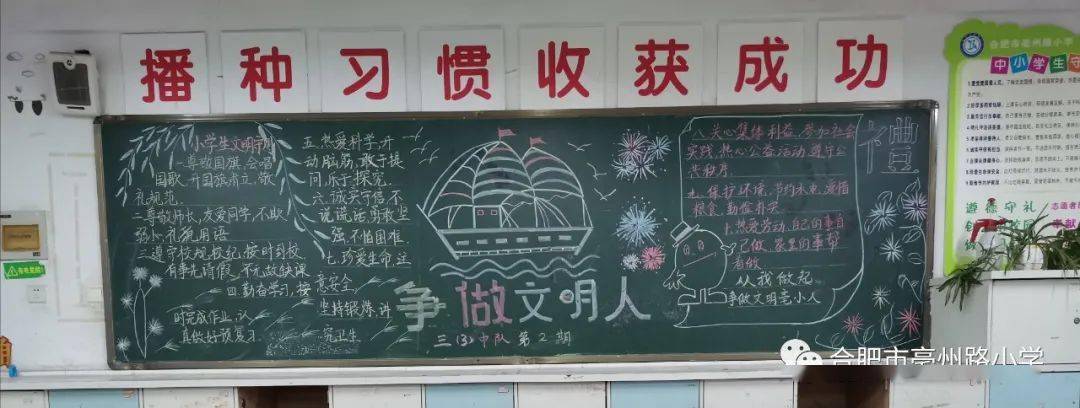 播种习惯收获成功
小学生文明守则
一.尊敬国旗,会唱
国歌,升国旗肃立,敬
礼规范.
二.尊敬师长,友爱同学,不欺
弱小,礼貌用语
三.遵守校规校纪,按时到校
有事先请假,不无故缺课
四.勤奋学习,按
时完成作业,认
真做好预复习.
五.热爱科学,开
动脑筋,敢于提
问,乐于探究.
六.诚实守信不
说谎话,勇敢坚
强,不怕困难.
七.珍爱生命,注
意安全,
坚持锻炼,讲
究卫生
争做文明人
三(3)中队 第2期
八.关心集体利益,参加社会
实践,热心公益活动,遵守公
共秩序.
九.保护环境,节约水电,爱惜
粮食,勤俭朴实
十.热爱劳动,自己的事自
己做,家里的事帮
着做.
从我做起
争做文明亳小人
合肥市亳州路小学
中小学生守
遵德守礼
志愿者
奉献
合肥市亳州路小学